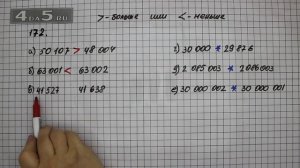 > - больше или < - меньше
172.
а) 50 107 > 48 004
г) 30 000 * 29 876
б) 63 001 < 63 002
д) 2 085 003 * 2 086 003
в) 41 527 41 638
е) 30 000 002 * 30 000 001